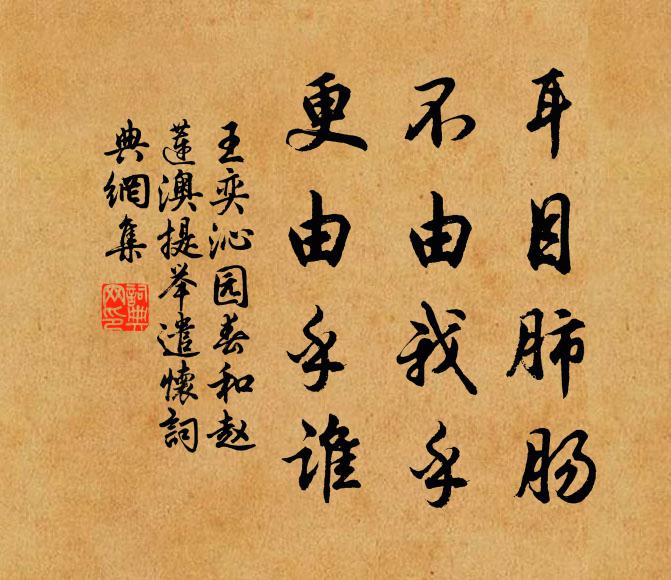 耳目肺肠
不由我乎
更由乎谁
王奕沁园春和赵
莲澳提举遣懷詞
典網集
詞典网印